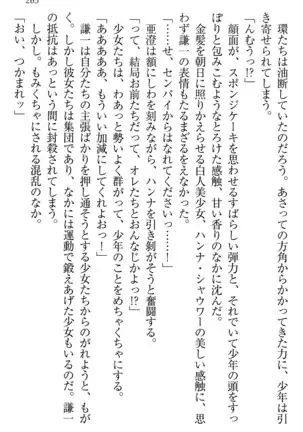 265
環たちは油断していたのだろう。あさっての方角からの力で、少年は引
き寄せられてしまう。
「んむうっ!?」
顔面が、スポンジケーキを思わせるすばらしい弾力と、それでいて少年の頭をすっ
ぽりと包みこむようなとろけた感触、甘い香りのなかに沈んだ。
金髪を朝日に照りかえらせる白人美少女、ハンナ・シャウワーの美しい感触に、思
わず謙一の表情もたるまざるをえなかった。
「……!　せ、センパイからはなれてくださいっ……!」
亜澄は額にしわを刻みながら、ハンナを引き剥がそうと奮闘する。
「って、結局お前たちだって、オレたちとおんなじだろ!?」
少女たちは、わあっと勢いよく群がって、少年のことをめちゃくちゃにする。
「あああああ、もういい加減にしてくれよおっ!」
謙一は自分たちの主張ばかりを押し通そうとする少女たちからのがれようと、もが
く。しかし彼女たちは集団であり、なかには運動で鍛えあげた少女もいるのだ。謙一
の抵抗はあっという間に封殺されてしまう。
しかし。もみくちゃにされる混乱のなか。
「おい、つかまれッ」